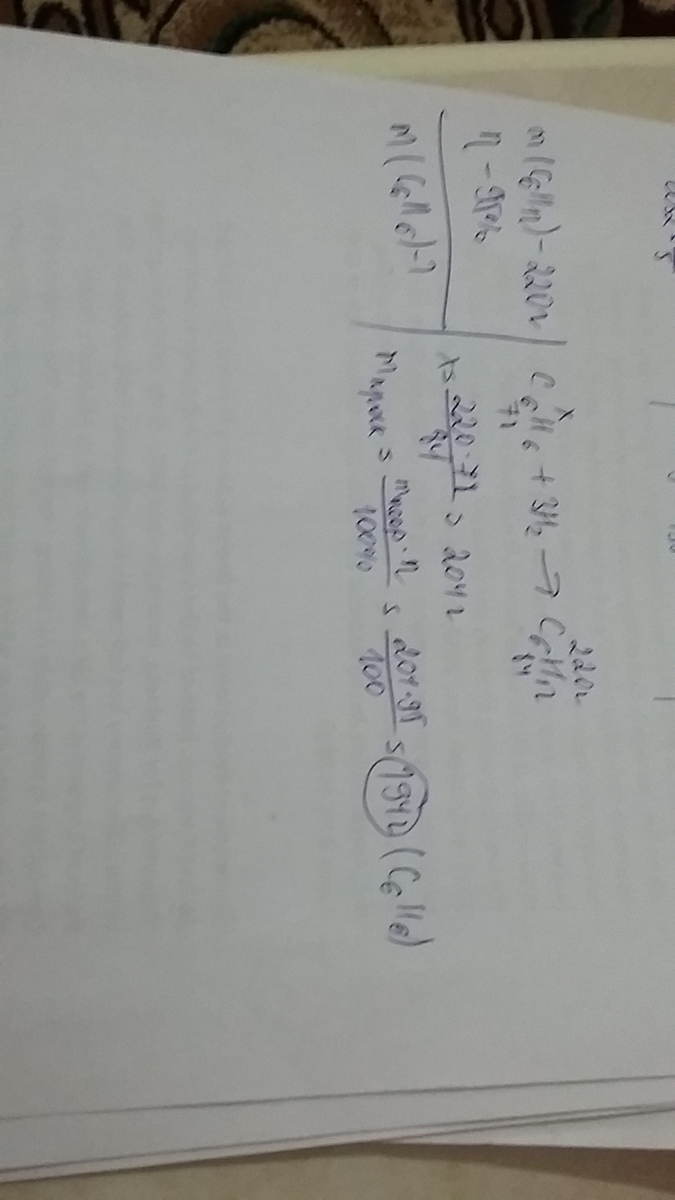 m(C6H12) - 220г
η - 95%
m(C6H6) - ?
x 220г
C6H6 + 3H2 → C6H12
78 84
x = 220·78/84 = 204г
mпрак = mтеор·η/100% = 204·95/100 = 194г (C6H6)